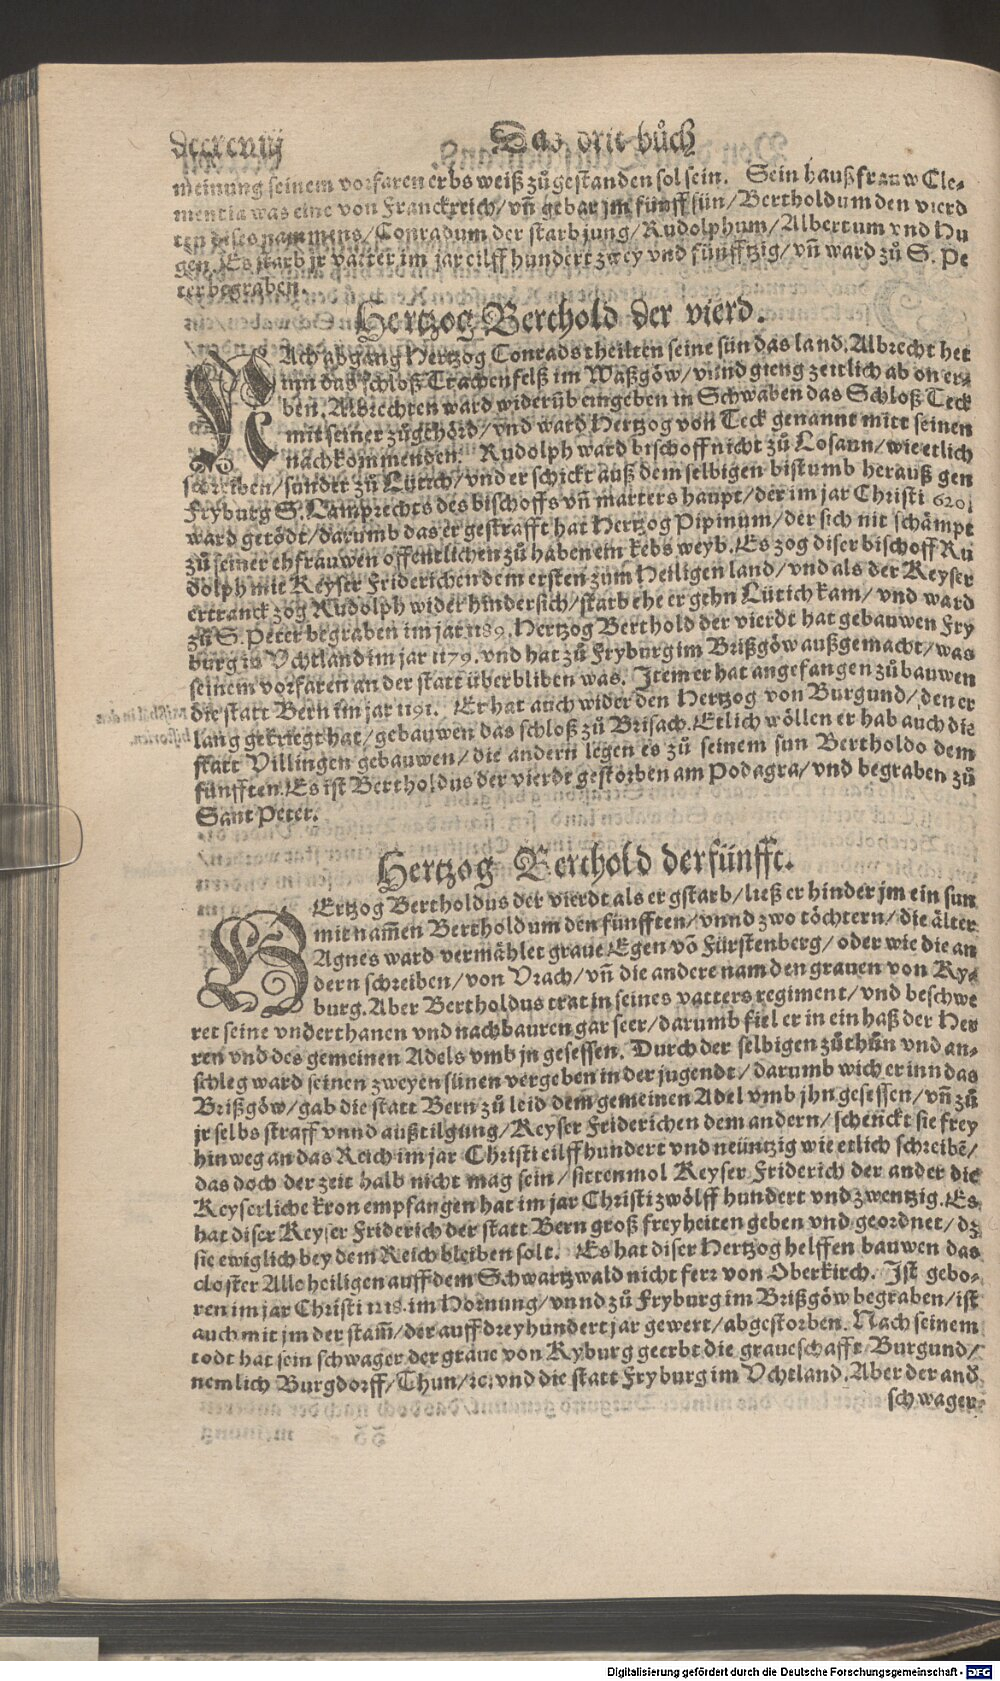 dccxcviij Das drit bůch
meinung seinem vorfaren erbs weiß zůgestanden sol sein. Sein haußfrauw Cle-
mentia was eine von Franckreich/ vñ gebar jm fünff sün/ Bertholdum den vierd
ten dises nammens/ Conradum der starb jung/ Rudolphum/ Albertum vnd Hu
gen. Es starb jr vatter im jar eilff hundert zwey vnd fünfftzig/ vñ ward zů S. Pe
ter begraben.
Hertzog Berthold der vierd.
NAch abgang Hertzog Conrads theilten seine sün das land. Albrecht het
inn das schloß Trachenfelß im Waßgöw/ vnnd gieng zeitlich ab on er-
ben. Albrechten ward widerůb eingeben in Schwaben das Schloß Teck
mit seiner zůgehörd/ vnd ward Hertzog von Teck genannt mitt seinen
nachkommenden. Rudolph ward bischoff nicht zů Losann/ wie etlich
schreiben/ sunder zů Lütich/ vnd er schickt auß dem selbigen bistumb herauß gen
Fryburg S. Lamprechts des bischoffs vñ marters haupt/ der im jar Christi 620.
ward getödt/ darumb das er gestrafft hat Hertzog Pipinum/ der sich nit schämpt
zů seiner ehfrauwen offentlichen zů haben ein kebs weyb. Es zog diser bischoff Ru
dolph mit Keyser Friderichen dem ersten zum Heiligen land/ vnd als der Keyser
ertranck zog Rudolph wider hindersich/ starb ehe er gehn Lütich kam/ vnd ward
zů S. Peter begraben im jar 1189. Hertzog Berthold der vierdt hat gebauwen Fry
burg in Vchtland im jar 1179. vnd hat zů Fryburg im Brißgöw außgemacht/ was
seinem vorfaren an der statt überbliben was. Item er hat angefangen zů bauwen
die statt Bern im jar 1191. Er hat auch wider den Hertzog von Burgund/ den er
lang gekriegt hat/ gebauwen das schloß zů Brisach. Etlich wöllen er hab auch die
statt Villingen gebauwen/ die andern legen es zů seinem sun Bertholdo dem
fünfften. Es ist Bertholdus der vierdt gestorben am Podagra/ vnd begraben zů
Sant Peter.
Hertzog Berthold der fünfft.
HErtzog Bertholdus der vierdt als er gstarb/ ließ er hinder jm ein sun
mit nam̃en Bertholdum den fünfften/ vnnd zwo töchtern/ die älter
Agnes ward vermählet graue Egen võ Fürstenberg/ oder wie die an
dern schreiben/ von Vrach/ vñ die andere nam den grauen von Ky-
burg. Aber Bertholdus trat in seines vatters regiment/ vnd beschwe
ret seine vnderthanen vnd nachbauren gar seer/ darumb fiel er in ein haß der Her
ren vnd des gemeinen Adels vmb jn gesessen. Durch der selbigen zůthůn vnd an-
schleg ward seinen zweyen sünen vergeben in der jugendt/ darumb wich er inn das
Brißgöw/ gab die statt Bern zů leid dem gemeinen Adel vmb jhn gesessen/ vñ zů
jr selbs straff vnnd außtilgung/ Keyser Friderichen dem andern/ schenckt sie frey
hinweg an das Reich im jar Christi eilff hundert vnd neüntzig wie etlich schreibẽ/
das doch der zeit halb nicht mag sein/ sittenmol Keyser Friderich der ander die
Keyserliche kron empfangen hat im jar Christi zwölff hundert vnd zwentzig. Es
hat diser Keyser Friderich der statt Bern groß freyheiten geben vnd geordnet/ dz
sie ewiglich bey dem Reich bleiben solt. Es hat diser Hertzog helffen bauwen das
closter Alle heiligen auff dem Schwartzwald nicht ferr von Oberkirch. Ist gebo-
ren im jar Christi 1218. im Hornung/ vnnd zů Fryburg im Brißgöw begraben/ ist
auch mit jm der stam̃/ der auff dreyhundert jar gewert/ abgestorben. Nach seinem
todt hat sein schwager der graue von Kyburg geerbt die graueschafft Burgund/
nemlich Burgdorff/ Thun/ ꝛc. vnd die statt Fryburg im Vchtland. Aber der and
schwager
Digitalisierung gefördert durch die Deutsche Forschungsgemeinschaft - DFG